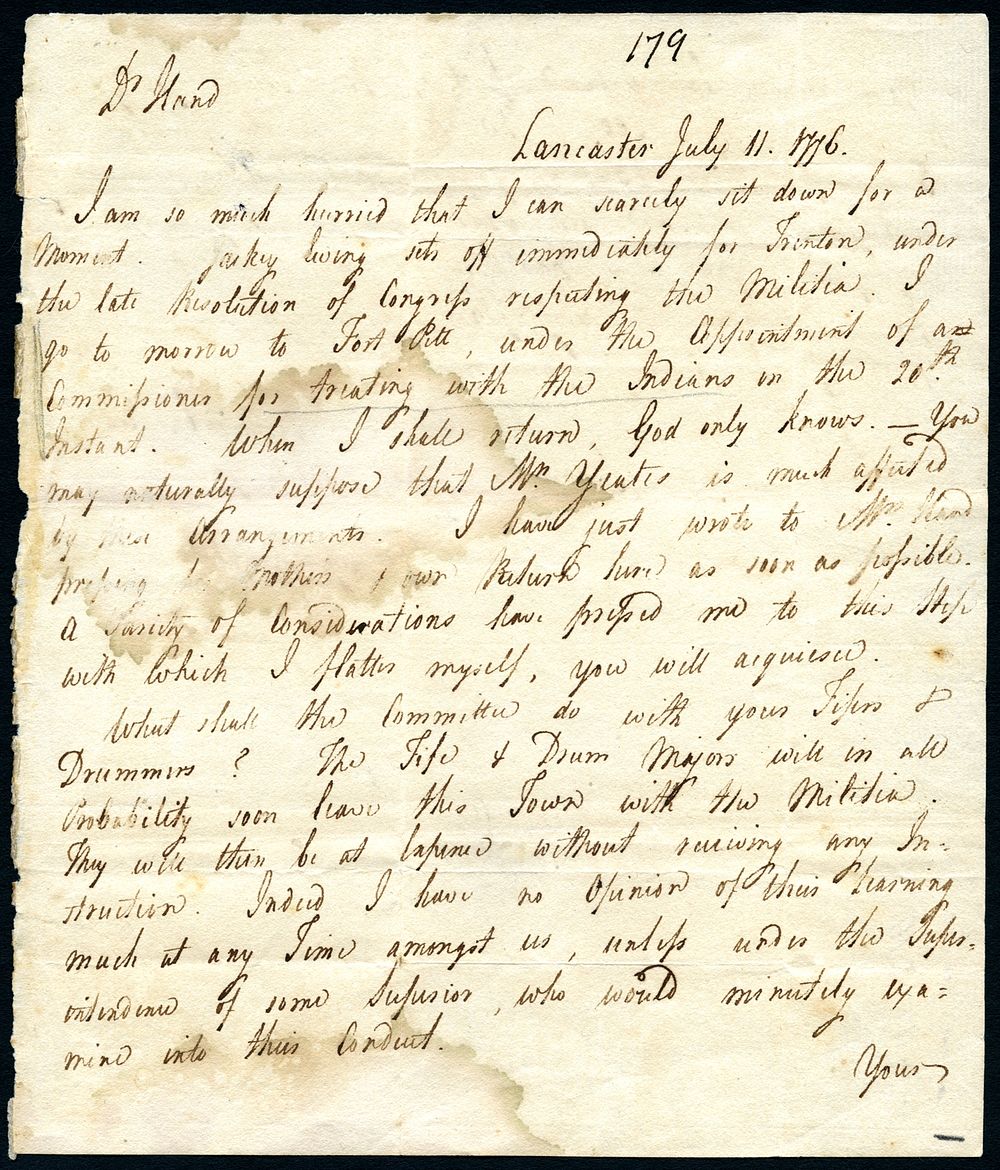 179
Dr Hand
Lancaster July 11. 1776.
I am so much hurried that I can scarcely sit down for a
Moment. Jackey Ewing sets off immediately for Trenton, under
the late Resolution of Congress respecting the Militia. I
go to morrow to Fort Pitt, under the Appointment of a
Commissioner for treating with the Indians on the 20th
Instant. When I shall return, God only knows. — You
may naturally suppose that Mrs Yeates is much affected
by these Arrangements. I have just wrote to Mrs Hand
pressing her Mother's & own Return here as soon as possible.
A Variety of Considerations have pressed me to this Step
with which I flatter myself, you will acquiesce.
What shall the Committee do with your Fifers &
Drummers? The Fife & Drum Majors will in all
Probability soon leave this Town with the Militia.
They will then be at Expence without receiving any In-
struction. Indeed I have no Opinion of their learning
much at any Time amongst us, unless under the Super-
intendence of some Superior, who would minutely exa=
mine into their Conduct.
Yours